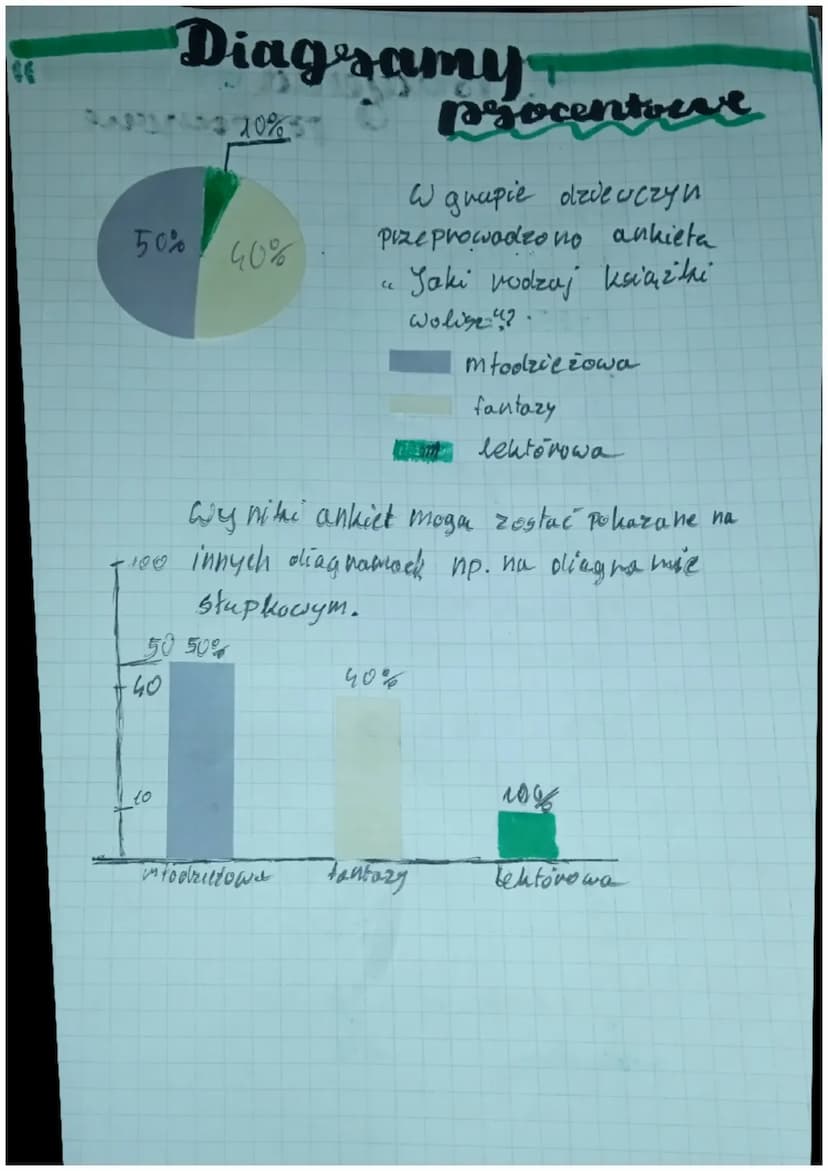 Diagramy
procentowe
10%
50%
40%
W grupie dziewczyn
przeprowadzono ankieta
"Jaki rodzaj książki
wolisz"?
młodzieżowa
fantazy
lektórowa
Wyniki ankiet moga zostać pokazane na
innych diagramach np. na diagramie
słupkowym.
100
50 50%
40
40%
10
10%
młodzieżowa fantazy lektórowa